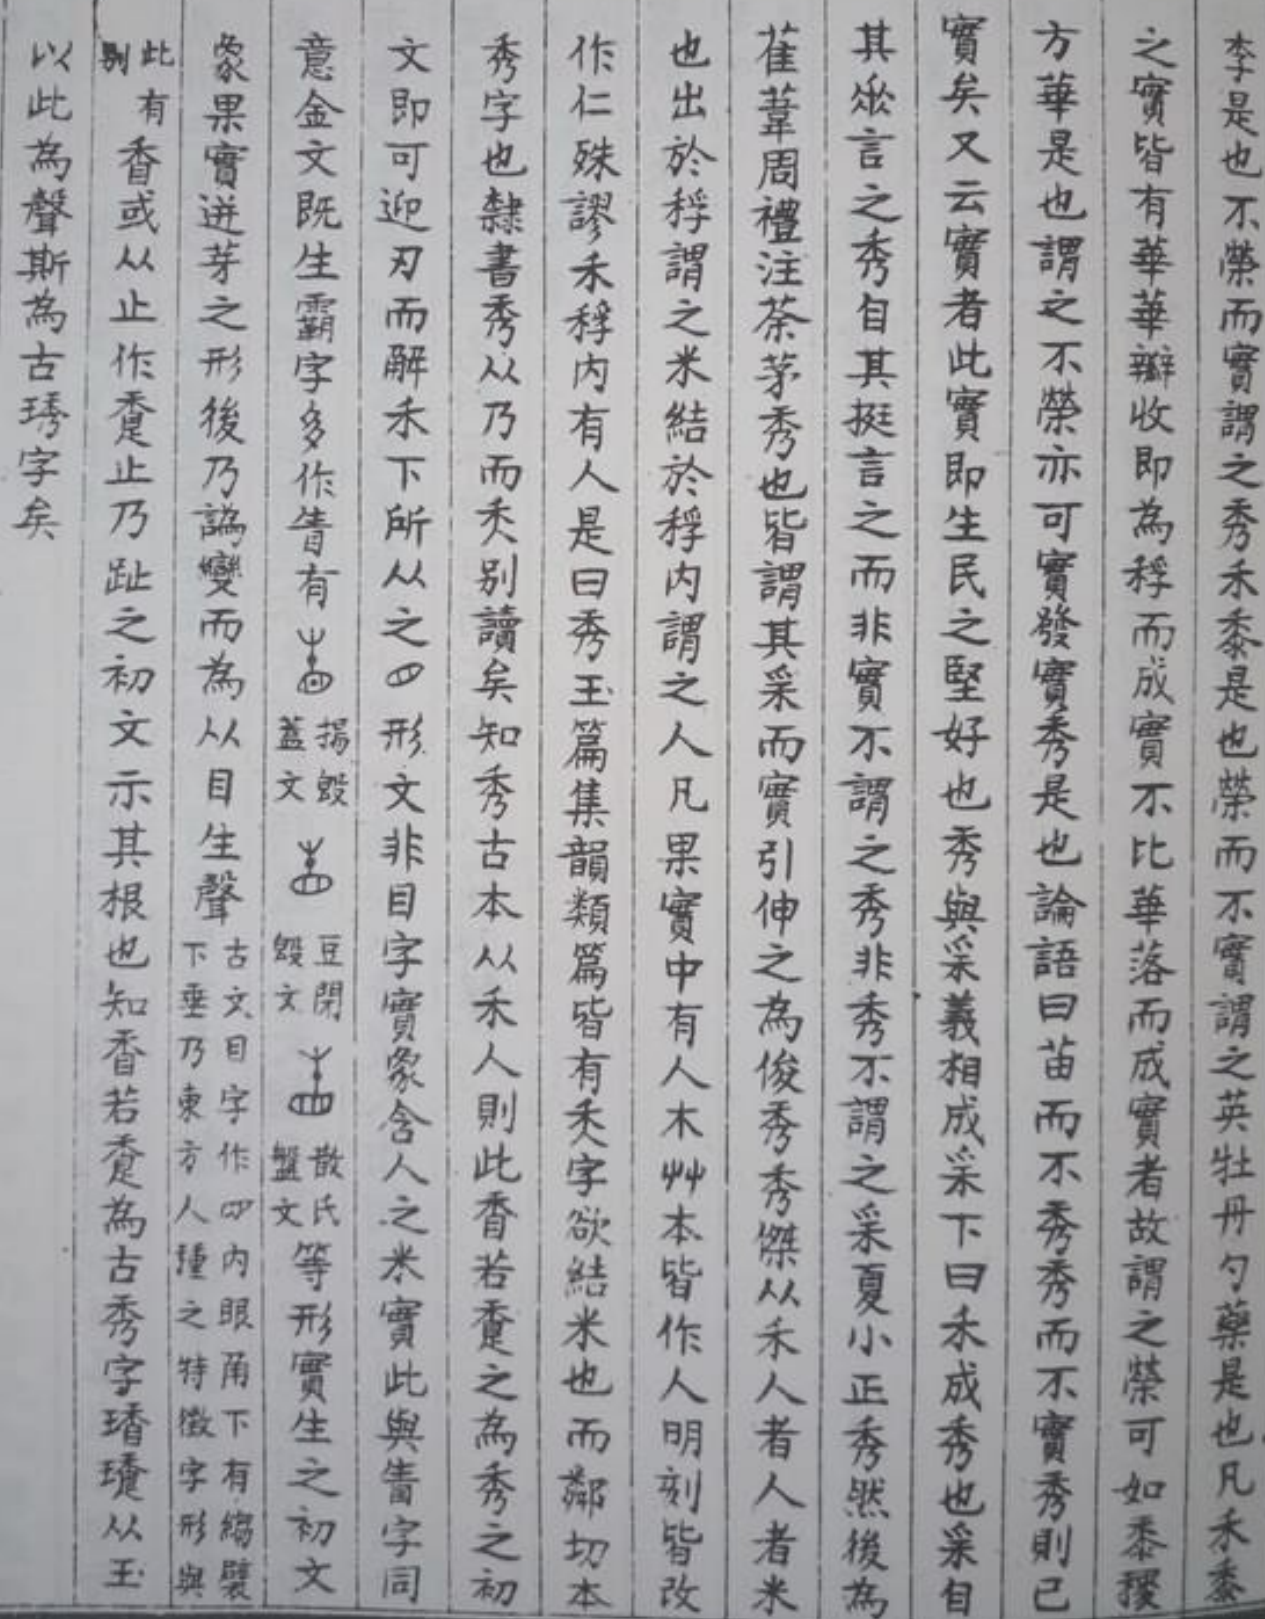 李是也不榮而實謂之秀禾黍是也榮而不實謂之英牡丹勺藥是也凡禾黍
之實皆有華華瓣收即為稃而成實不比華落而成實者故謂之榮可如黍稷
方華是也謂之不榮亦可實發實秀是也論語曰苗而不秀秀而不實秀則已
實矣又云實者此實即生民之堅好也秀與采義相成采下曰禾成秀也采自
其楙言之秀自其挺言之而非實不謂之秀非秀不謂之采夏小正秀然後為
萑葦周禮注荼茅秀也皆謂其采而實引伸之為俊秀秀傑从禾人者人者米
也出於稃謂之米結於稃內謂之人凡果實中有人木艸本皆作人明刻皆改
作仁殊謬禾稃內有人是曰秀玉篇集韻類篇皆有秂字欲結米也而鄰切本
秀字也隸書秀从乃而秂別讀矣知秀古本从禾人則此㮟若䅲之為秀之初
文即可迎刃而解禾下所从之形文非目字實象含人之米實此與眚字同
意金文既生霸字多作眚有揚𣪘蓋文豆閉𣪘文散氏盤文等形實生之初文
象果實迸芽之形後乃譌變而為从目生聲古文目字作內眼角下有縐襞下垂乃東方人種之特徵字形與
此別有或从止作止乃趾之初文示其根也知若為古秀字从玉
以此為聲斯為古琇字矣